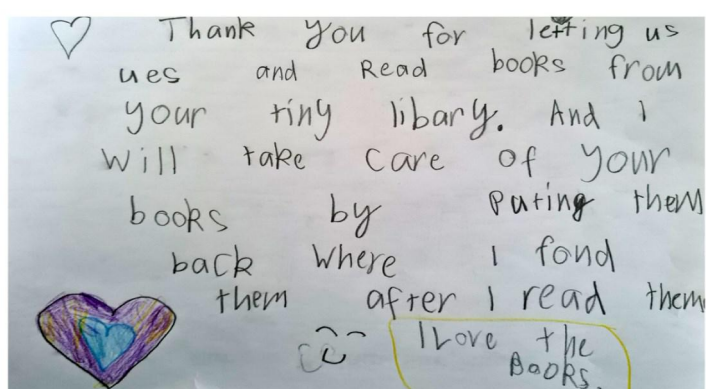 Thank you for letting us
ues and Read books from
your tiny libary. And I
will take care of your
books by puting them
back where I fond
them after I read them
I Love the
BOOKS.